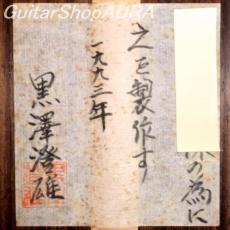 GuitarShopAURA
の為に
之を製作す
一九九三年
黒澤澄雄